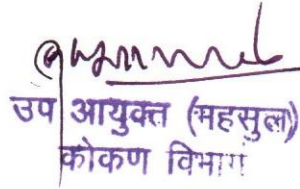 उप आयुक्त (महसुल)
कोकण विभाग